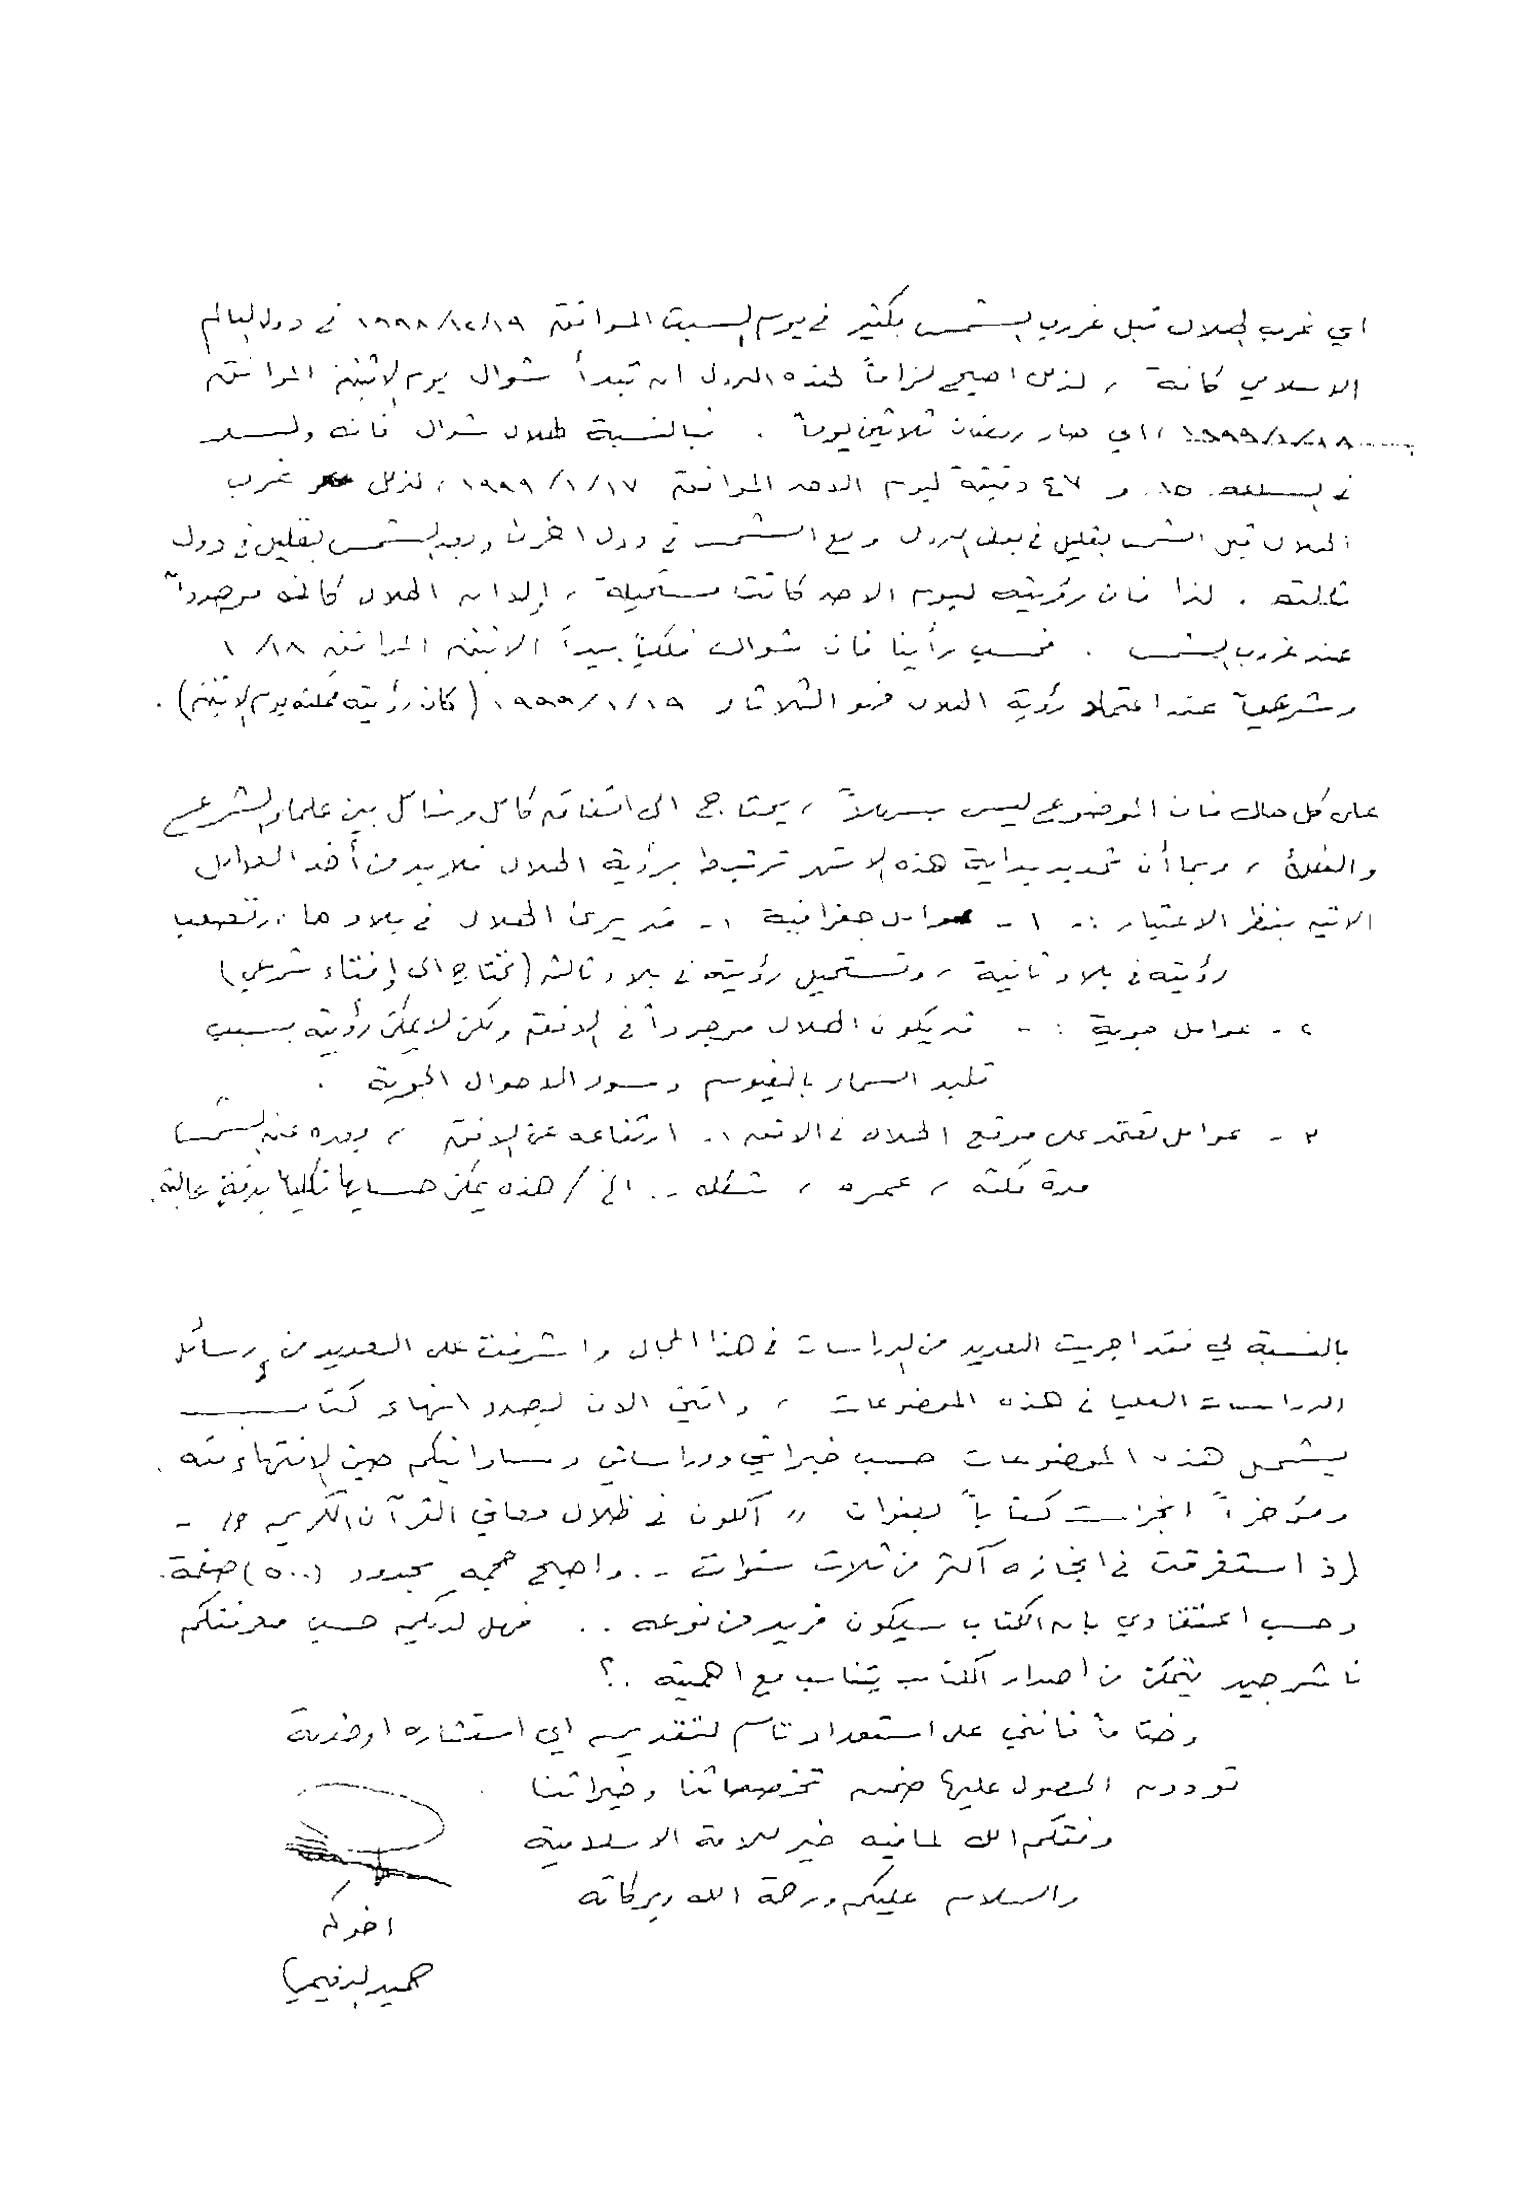 اي غرب الهلال قبل غروب الشمس بكثير في يوم السبت الموافق ١٩٩٨/١٢/١٩ في دول العالم
الاسلامي كافة ، لذلك اصبح لزاماً لهذه الدول ان تبدأ شوال يوم الاثنين الموافق
١٩٩٩/١/١٨ ، اي صار رمضان ثلاثين يوماً . فبالنسبة لهلال شوال فانه ولد
في الساعة ١٥ و ٤٧ دقيقة ليوم الاحد الموافق ١٩٩٩/١/١٧ ، لذلك غرب
الهلال قبل الشمس بقليل في بعض الدول ومع الشمس في دول اخرى وبعد الشمس بقليل في دول
ثالثه . لذا فان رؤيته ليوم الاحد كانت مستحيلة ، إلا ان الهلال كان موجوداً
عند غروب الشمس . فحسب رأينا فان شوال فلكياً يبدأ الاثنين الموافق ١/١٨
وشرعياً عند اعتماد رؤية الهلال فهو الثلاثاء ١٩٩٩/١/١٩ (كان رؤيته ممكنه يوم الاثنين) .
على كل حال فان الموضوع ليس سهلاً ، يحتاج الى اتفاق كامل وشامل بين علماء الشرع
والفلك ، وبما أن تحديد بداية هذه الاشهر ترتبط برؤية الهلال فلابد من أخذ العوامل
الاتيه بنظر الاعتبار :- ١ - عوامل جغرافية :- قد يرى الهلال في بلاد ما ، وتصعب
رؤيته في بلاد ثانية ، وتستحيل رؤيته في بلاد ثالثه (تحتاج الى إفتاء شرعي)
٢ - عوامل جوية :- قد يكون الهلال موجوداً في الافق ولكن لا يمكن رؤيته بسبب
تلبد السماء بالغيوم وسوء الاحوال الجوية .
٣ - عوامل تعتمد على موقع الهلال في الافق :- ارتفاعه عن الافق ، وبعده عن الشمس
مدة مكثه ، عمره ، شكله .. الخ / هذه يمكن حسابها فلكياً بدقة عالية .
بالنسبة لي فقد اجريت العديد من الدراسات في هذا المجال واشرفت على العديد من رسائل
الدراسات العليا في هذه الموضوعات ، وانني الان بصدد انهاء كتاب
يشمل هذه الموضوعات حسب خبراتي ودراساتي وساوافيكم حين الانتهاء منه .
ومؤخراً انجزت كتاباً بعنوان " الكون في ظلال معاني القرآن الكريم " -
إذ استغرقت في انجازه اكثر من ثلاث سنوات .. واصبح حجمه بحدود (٥٠٠) صفحة .
وحسب اعتقادي بان الكتاب سيكون فريد من نوعه .. فهل لديكم حسب معرفتكم
ناشر جيد يتمكن من اصدار الكتاب يتناسب مع اهميته .؟
وختاماً فانني على استعداد تام لتقديم اي استشاره اوخدمة
تودون الحصول عليها ضمن تخصصاتنا وخبراتنا
وفقكم الله لما فيه خير للامة الاسلامية
والسلام عليكم ورحمة الله وبركاته
اخوكم
حميد النعيمي